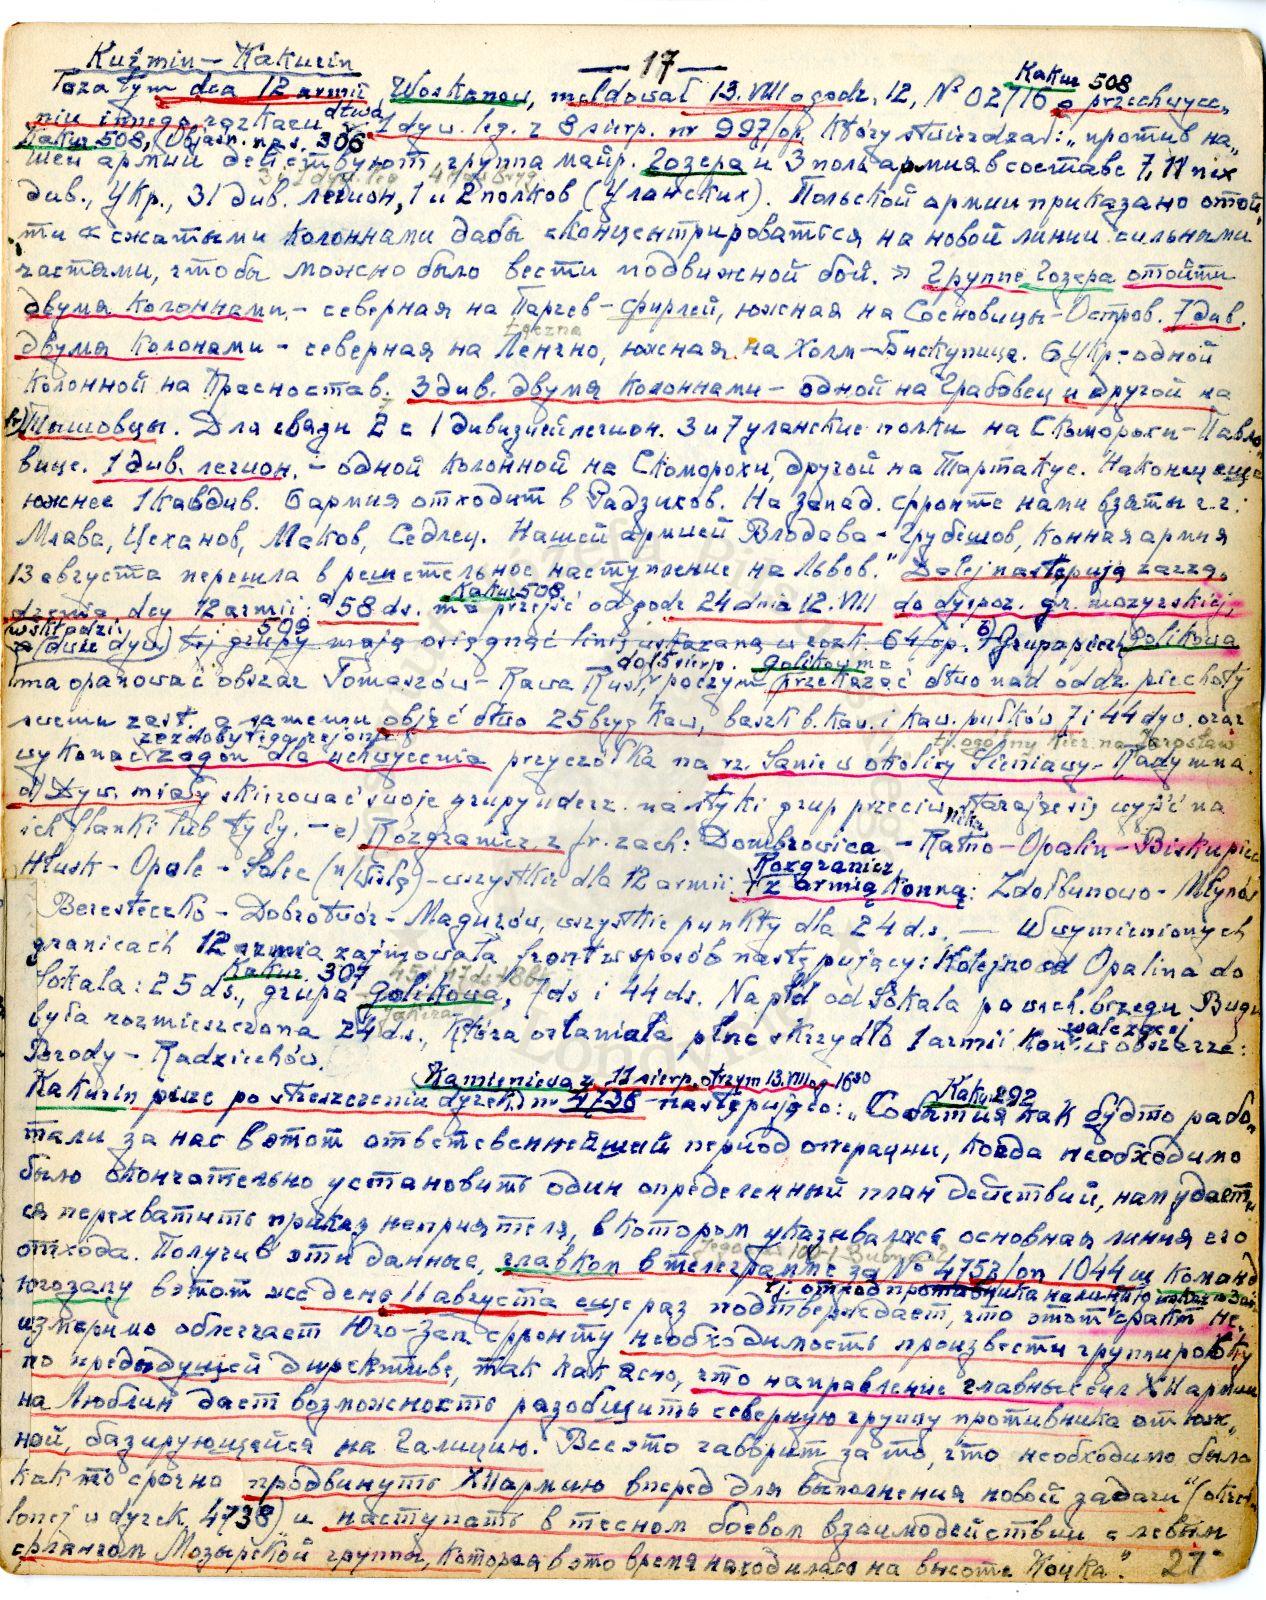 Kuźmin – Kakurin
— 17 —
Kakur 508
Poza tym dca 12 armii Woskanow, meldował 13.VIII o godz. 12, № 02/16 o przechwyce-
niu innego rozkazu dtwa 1 dyw. leg. z 8 sierp. nr 997/op, który stwierdzał: „против на-
Kakur 508, Objaśn. na s. 306
шей армии действуют, группа майр. Гозера и 3 поль армия в составе 7, 11 пех
3 i 1 dyw. leg
див., Укр., 31 див. легион, 1 и 2 полков (Уланских). Польской армии приказано отой-
ти сжатыми колоннами дабы сконцентрироваться на новой линии сильными
частями, чтобы можно было вести подвижной бой.» Группе Гозера отойти
двумя колоннами – северная на Парчев – Фирлей, южная на Сосновицы – Остров. 7 див.
Łęczna
двумя колонами – северная на Ленчно, южная на Холм – Бискупице. 6 Укр – одной
колонной на Красностав. 3 див. двумя колоннами – одной на Грабовец и другой на
Тышовцы. Для связи 2 с 1 дивизией легион. 3 и 7 уланские полки на Скоморохи – Павло-
вице. 1 див. легион. – одной колонной на Скоморохи, другой на Тартакус. Наконец еще
южнее 1 кавдив. 6 армия отходит в Радзихов. На запад. фронте нами взяты г.г.:
Млава, Цеханов, Маков, Седлец. Нашей армией Влодава – Грубешов, конная армия
13 августа перешла в решительное наступление на Львов." Dalej następują zarzą-
Kakur 508
dzenia dcy 12 armii: a) 58 ds. ma przejść od godz 24 dnia 12.VIII do dyspoz. gr. mozyrskiej,
509
grupy mają osiągnąć linię wskazaną w rozk. 64/op. b) Grupa piech. Golikowa
do 15 sierp. Golikow ma
ma opanować obszar Tomaszów – Rawa Rus., poczym przekazać dtwo nad oddz. piechoty
swemu zast., a samemu objąć dtwo 25 bryg kaw, baszk b. kaw. i kaw. pułków 7 i 44 dyw. oraz
ze zdobytego rejonu
tj. ogólny kier. na Jarosław
wykonać zagon dla uchwycenia przyczółka na rz. Sanie w okolicy Sieniawy – Radymna.
d) Dyw. miały skierować swoje grupy uderz. na styki grup przeciw-
nika
starając się wyjść na
ich flanki lub tyły. – e) Rozgranicz. z fr. zach: Dombrowica – Ratno – Opalin – Biskupice
Hłusk – Opole – Solec (n/Wisłą) – wszystkie dla 12 armii;
Rozgranicz
z armią konną: Zdołbunowo – Młynów
Beresteczko – Dobrotwór – Magurów, wszystkie punkty dla 24 ds. — W wymienionych
granicach 12 armia zajmowała front w sposób następujący: Kolejno od Opalina do
Kakur. 307
Sokala: 25 ds., grupa Golikowa, 7 ds i 44 ds. Na płd od Sokala po wsch. brzegu Bugu
Jakira
była rozmieszczona 24 ds., która osłaniała płnc skrzydło 1 armii Kon.
walczącej
w obszarze:
Brody – Radziechów.
Kamieniewa z 11 sierp., otrzym 13.VIII o g 16³⁰
Kakur 292
Kakurin pisze po streszczeniu dyrek. nr 4738 następująco: „События как будто рабо-
тали за нас в этот ответственнейший период операции, когда необходимо
было окончательно установить один определенный план действий, нам удает-
ся перехватить приказ неприятеля, в котором указывалась основная линия его
отхода. Получив эти данные, главком в телеграмме за № 4753/оп 1044 ш команд
югозапу в этот же день 11 августа еще раз подтверждает, что этот факт не-
tj. отход противника на линию
измеримо облегчает Юго-Зап. фронту необходимость произвести группировку
по предыдущей директиве, так как ясно, что направление главных сил XII армии
на Люблин дает возможность разобщить северную группу противника от юж-
ной, базирующейся на Галицию. Все это говорит за то, что необходимо было
как то срочно продвинуть XII армию вперед для выполнения новой задачи" (określ-
lonej w dyrek. 4738) и наступать в тесном боевом взаимодействии с левым
флангом Мозырской группы, которая в это время находилась на высоте Коцка".
27